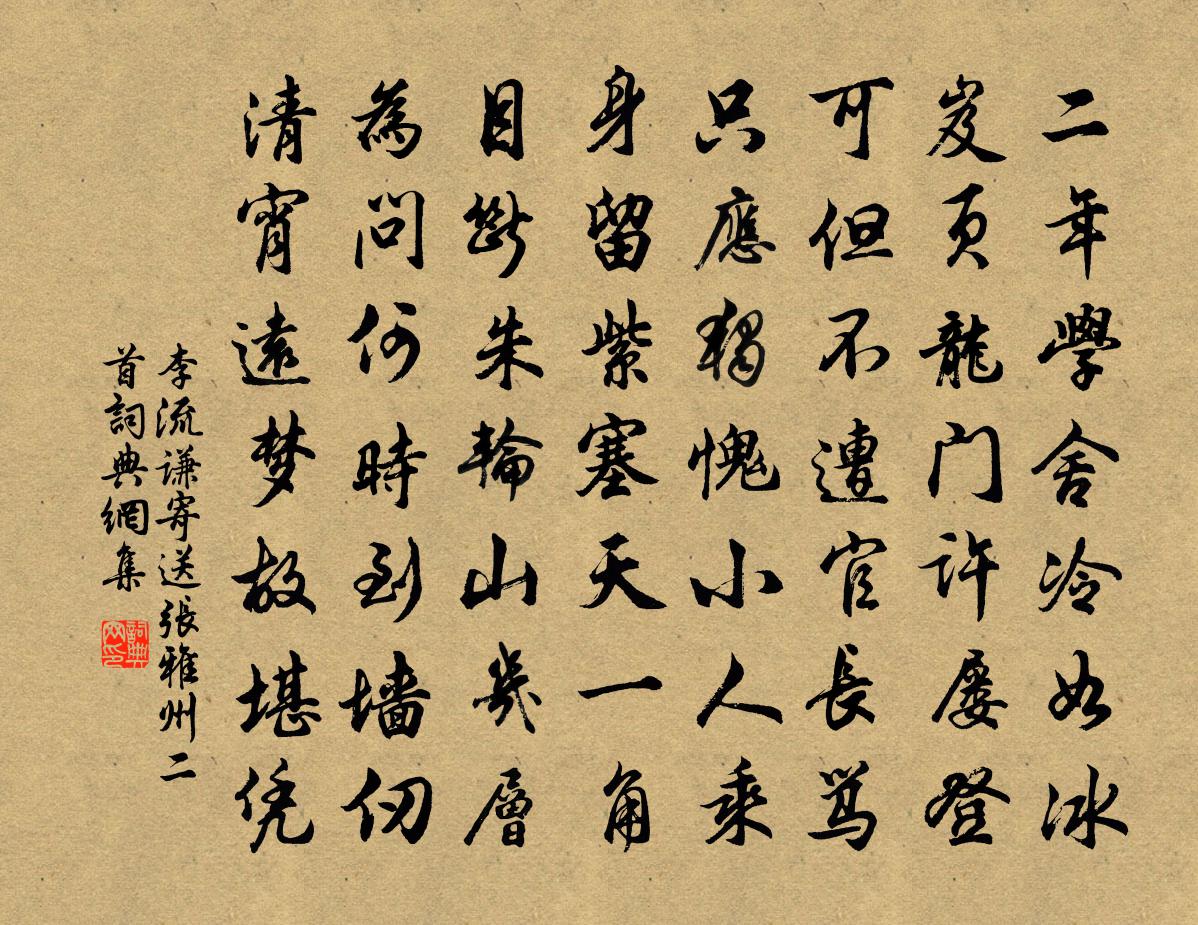 二年學舍冷如冰
岌頁龍门許屡登
可但不遭官長骂
只應獨愧小人乘
身留紫塞天一角
目斷朱輪山幾層
為問何時到墙仞
清宵遠梦故堪凭
李流谦寄送張雅州二
首詞典網集
詞典网印